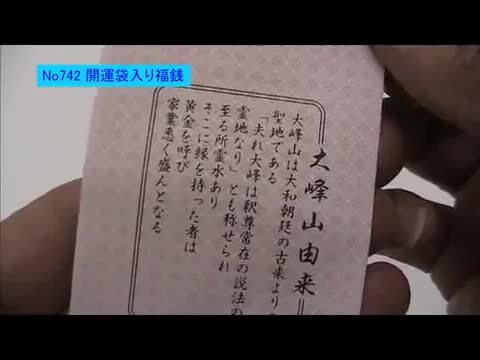 No742 開運袋入り福銭
大峰山由来
大峰山は大和朝廷の古来より
聖地である
「夫れ大峰は釈尊常在の説法の
霊地なり」とも称せられ
至る所霊水あり
そこに縁を持った者は
黄金を呼び
家業悉く盛んとなる